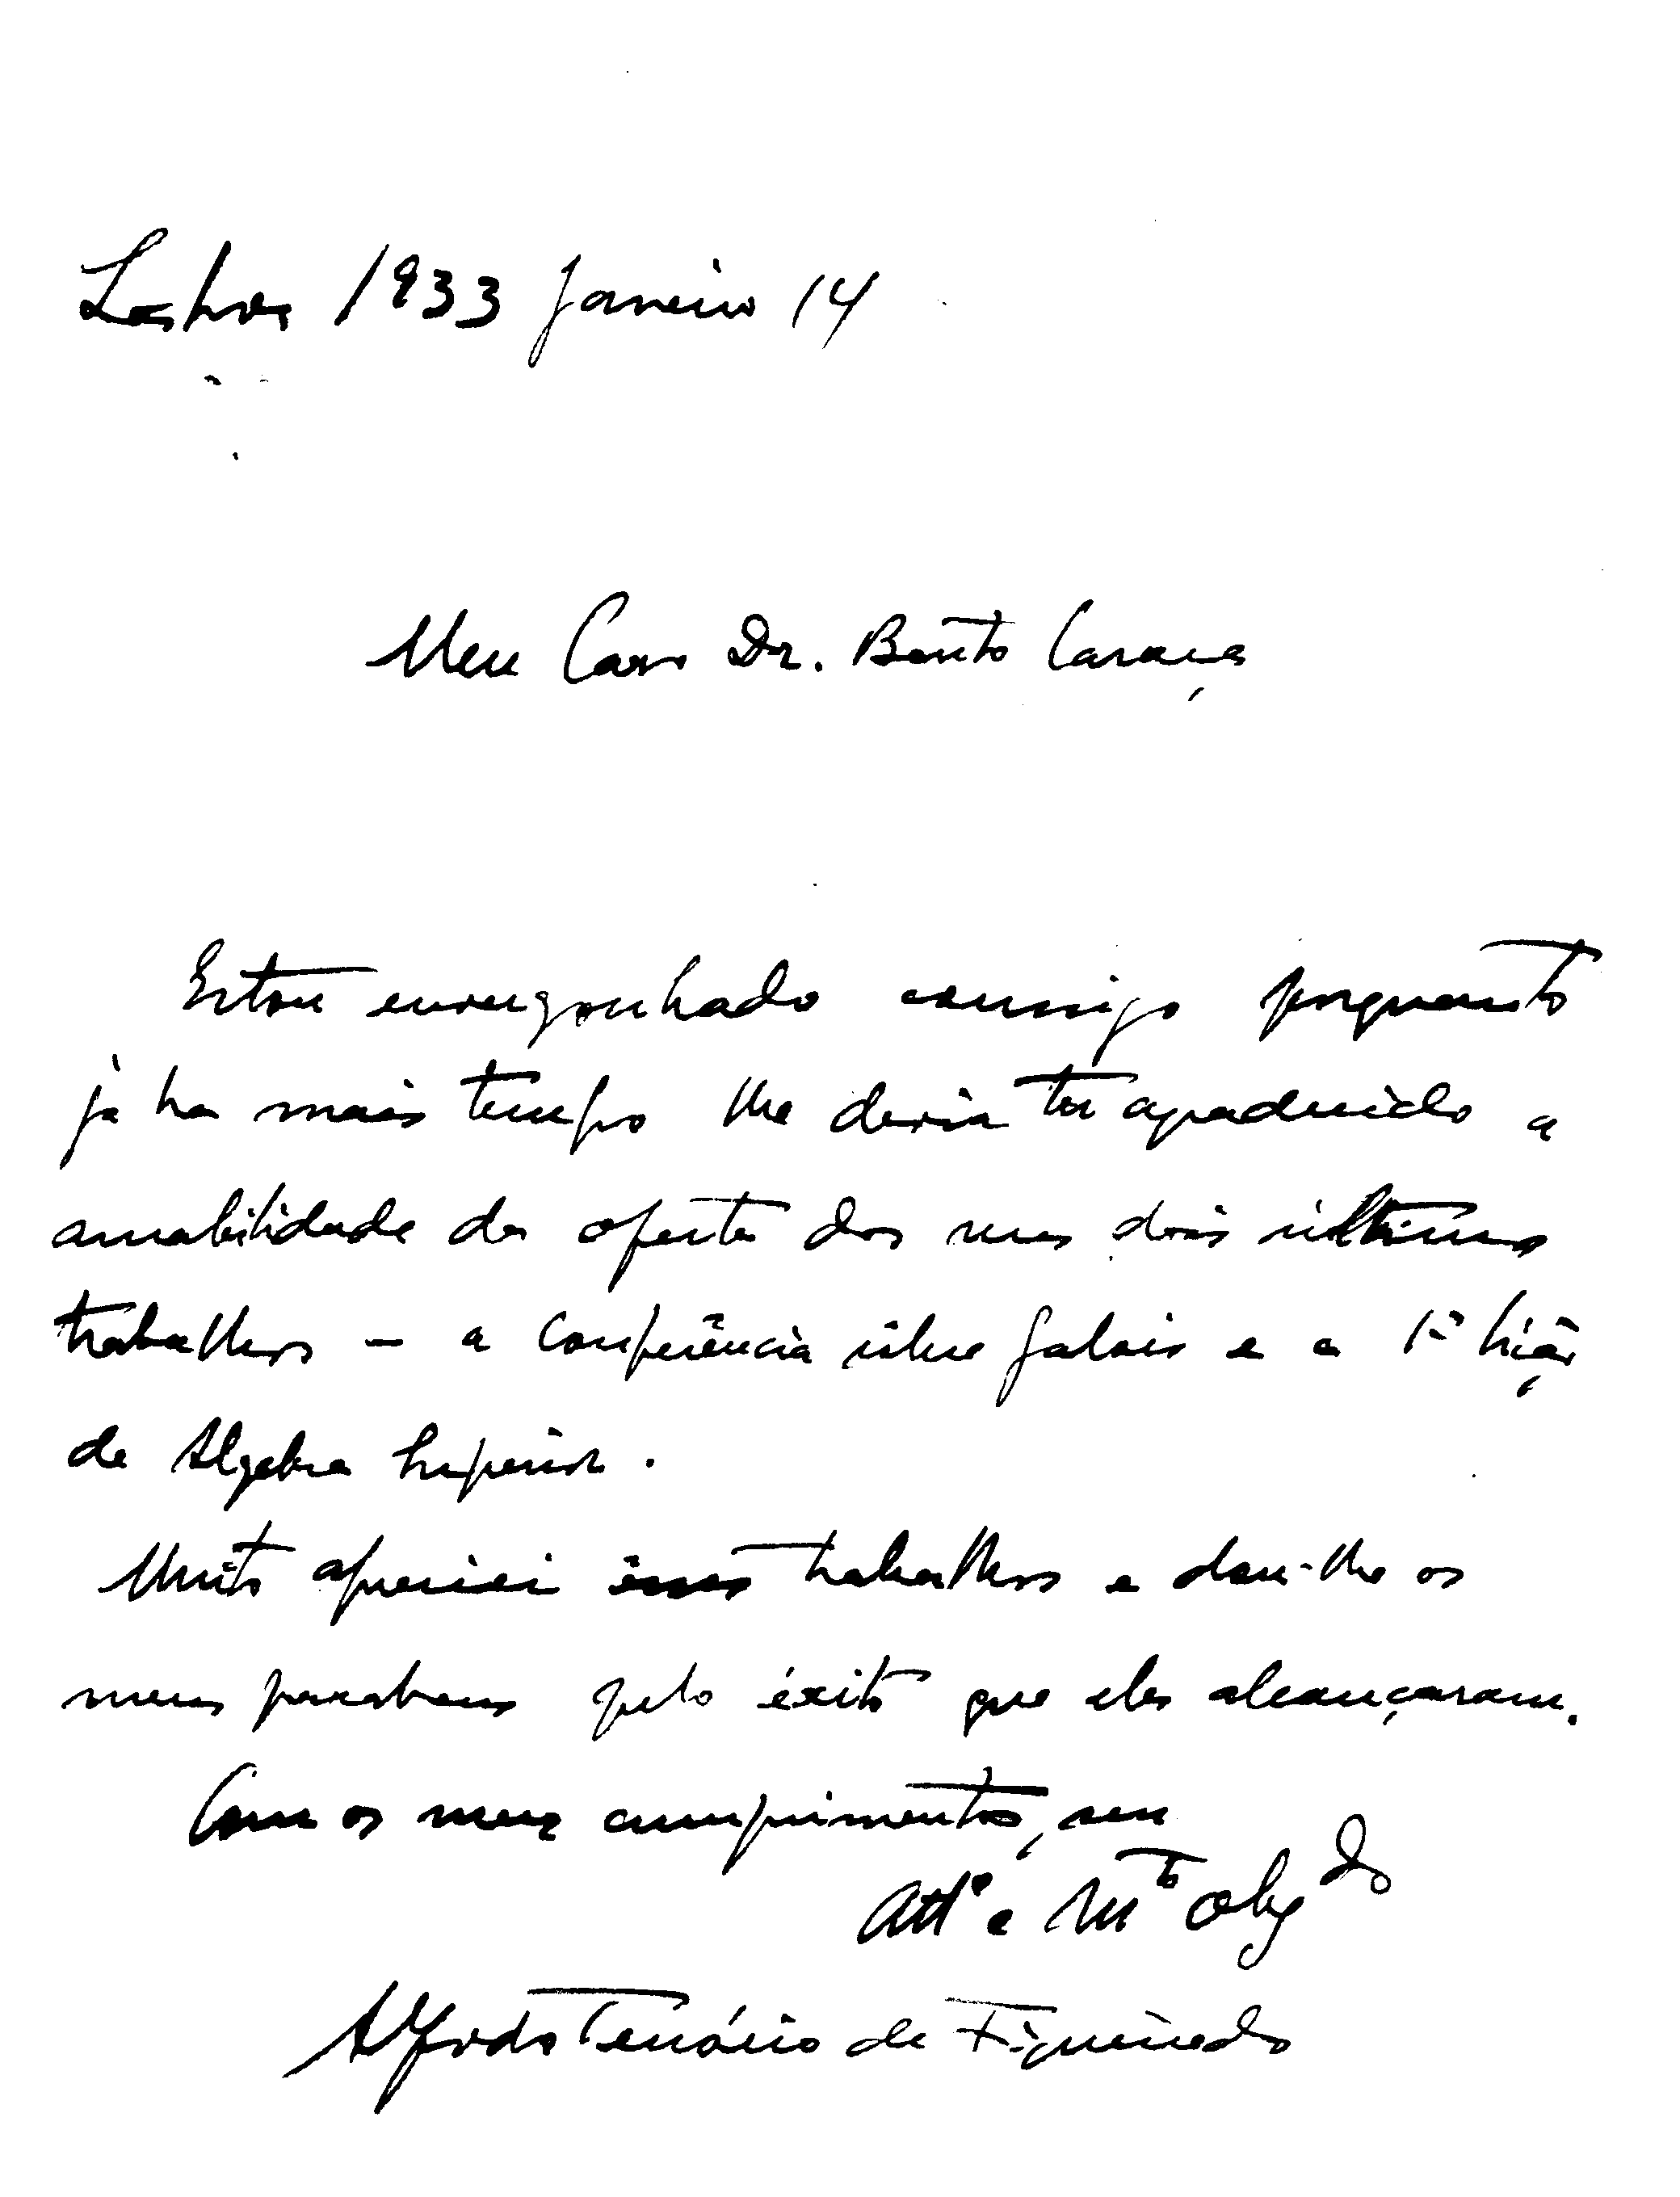 Lisboa 1933 Janeiro 14
Meu Caro Dr. Bento Caraça
Estou envergonhado consigo porquanto
já ha mais tempo lhe devia ter agradecido a
amabilidade da oferta dos seus dois últimos
trabalhos – a Conferência sôbre Galois e a 1ª lição
de Algebra Superior.
Muito apreciei êsses trabalhos e dou-lhe os
meus parabens pelo éxito que eles alcançaram.
Com os meus cumprimentos, seu
Attº e Mto obgdo
Alfredo Tenório de Figueiredo